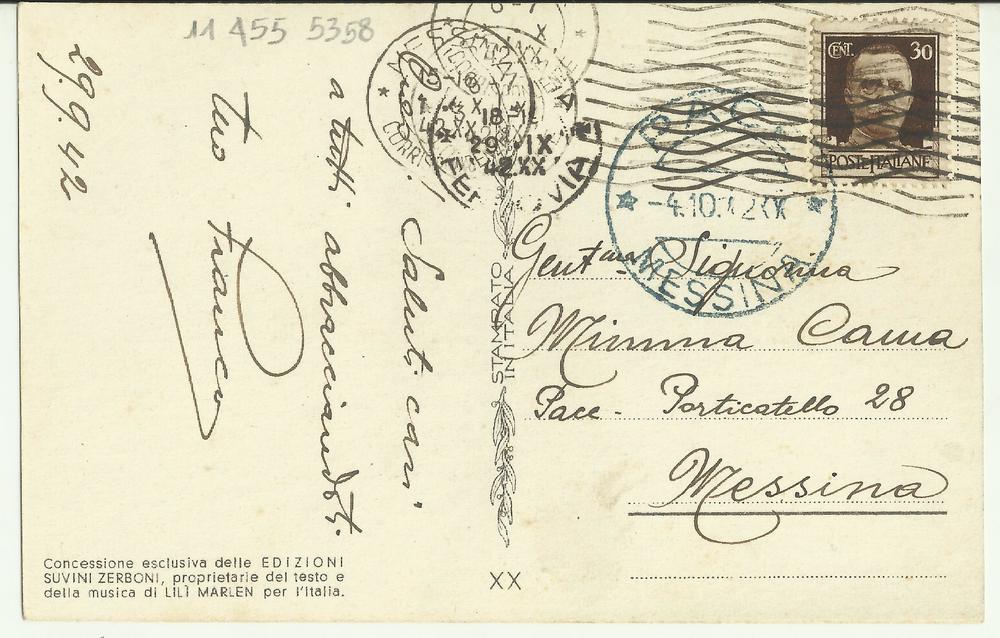 11 A55 5358
29.9.42
Saluti cari
a tutti abbracciandoti.
tuo Franco
CENT. 30
POSTE ITALIANE
MESSINA
29 IX
42.XX
PACE
-4.10.42XX
MESSINA
Gent.ma Signorina
Mimma Cama
Pace - Porticatello 28
Messina
STAMPATO
IN ITALIA
XX
Concessione esclusiva delle EDIZIONI
SUVINI ZERBONI, proprietarie del testo e
della musica di LILÌ MARLEN per l'Italia.